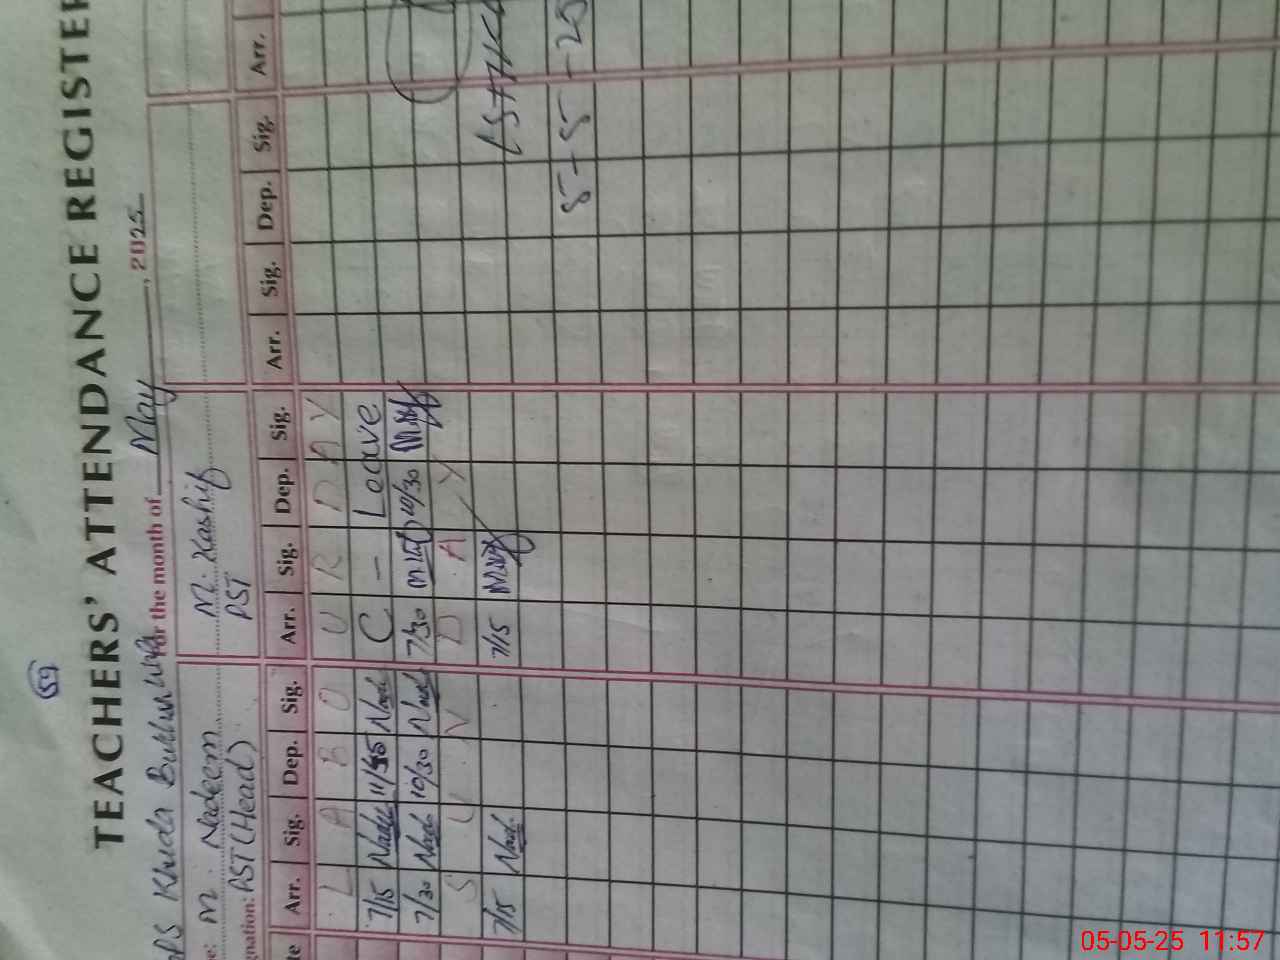 59
TEACHERS' ATTENDANCE REGISTER
PS Khuda Bukhsh For the month of May, 2025
e: M. Nadeem M. Kashif
gnation: PST (Head) PST
te Arr. Sig. Dep. Sig. Arr. Sig. Dep. Sig. Arr. Sig. Dep. Sig. Arr.
L A B O U R D A Y
7/15 Nad 11/35 Nad C - Leave
7/30 Nad 10/30 Nad 7/30 10/30
S U N D A Y
7/15 Nad 7/15
5-5-25
05-05-25 11:57